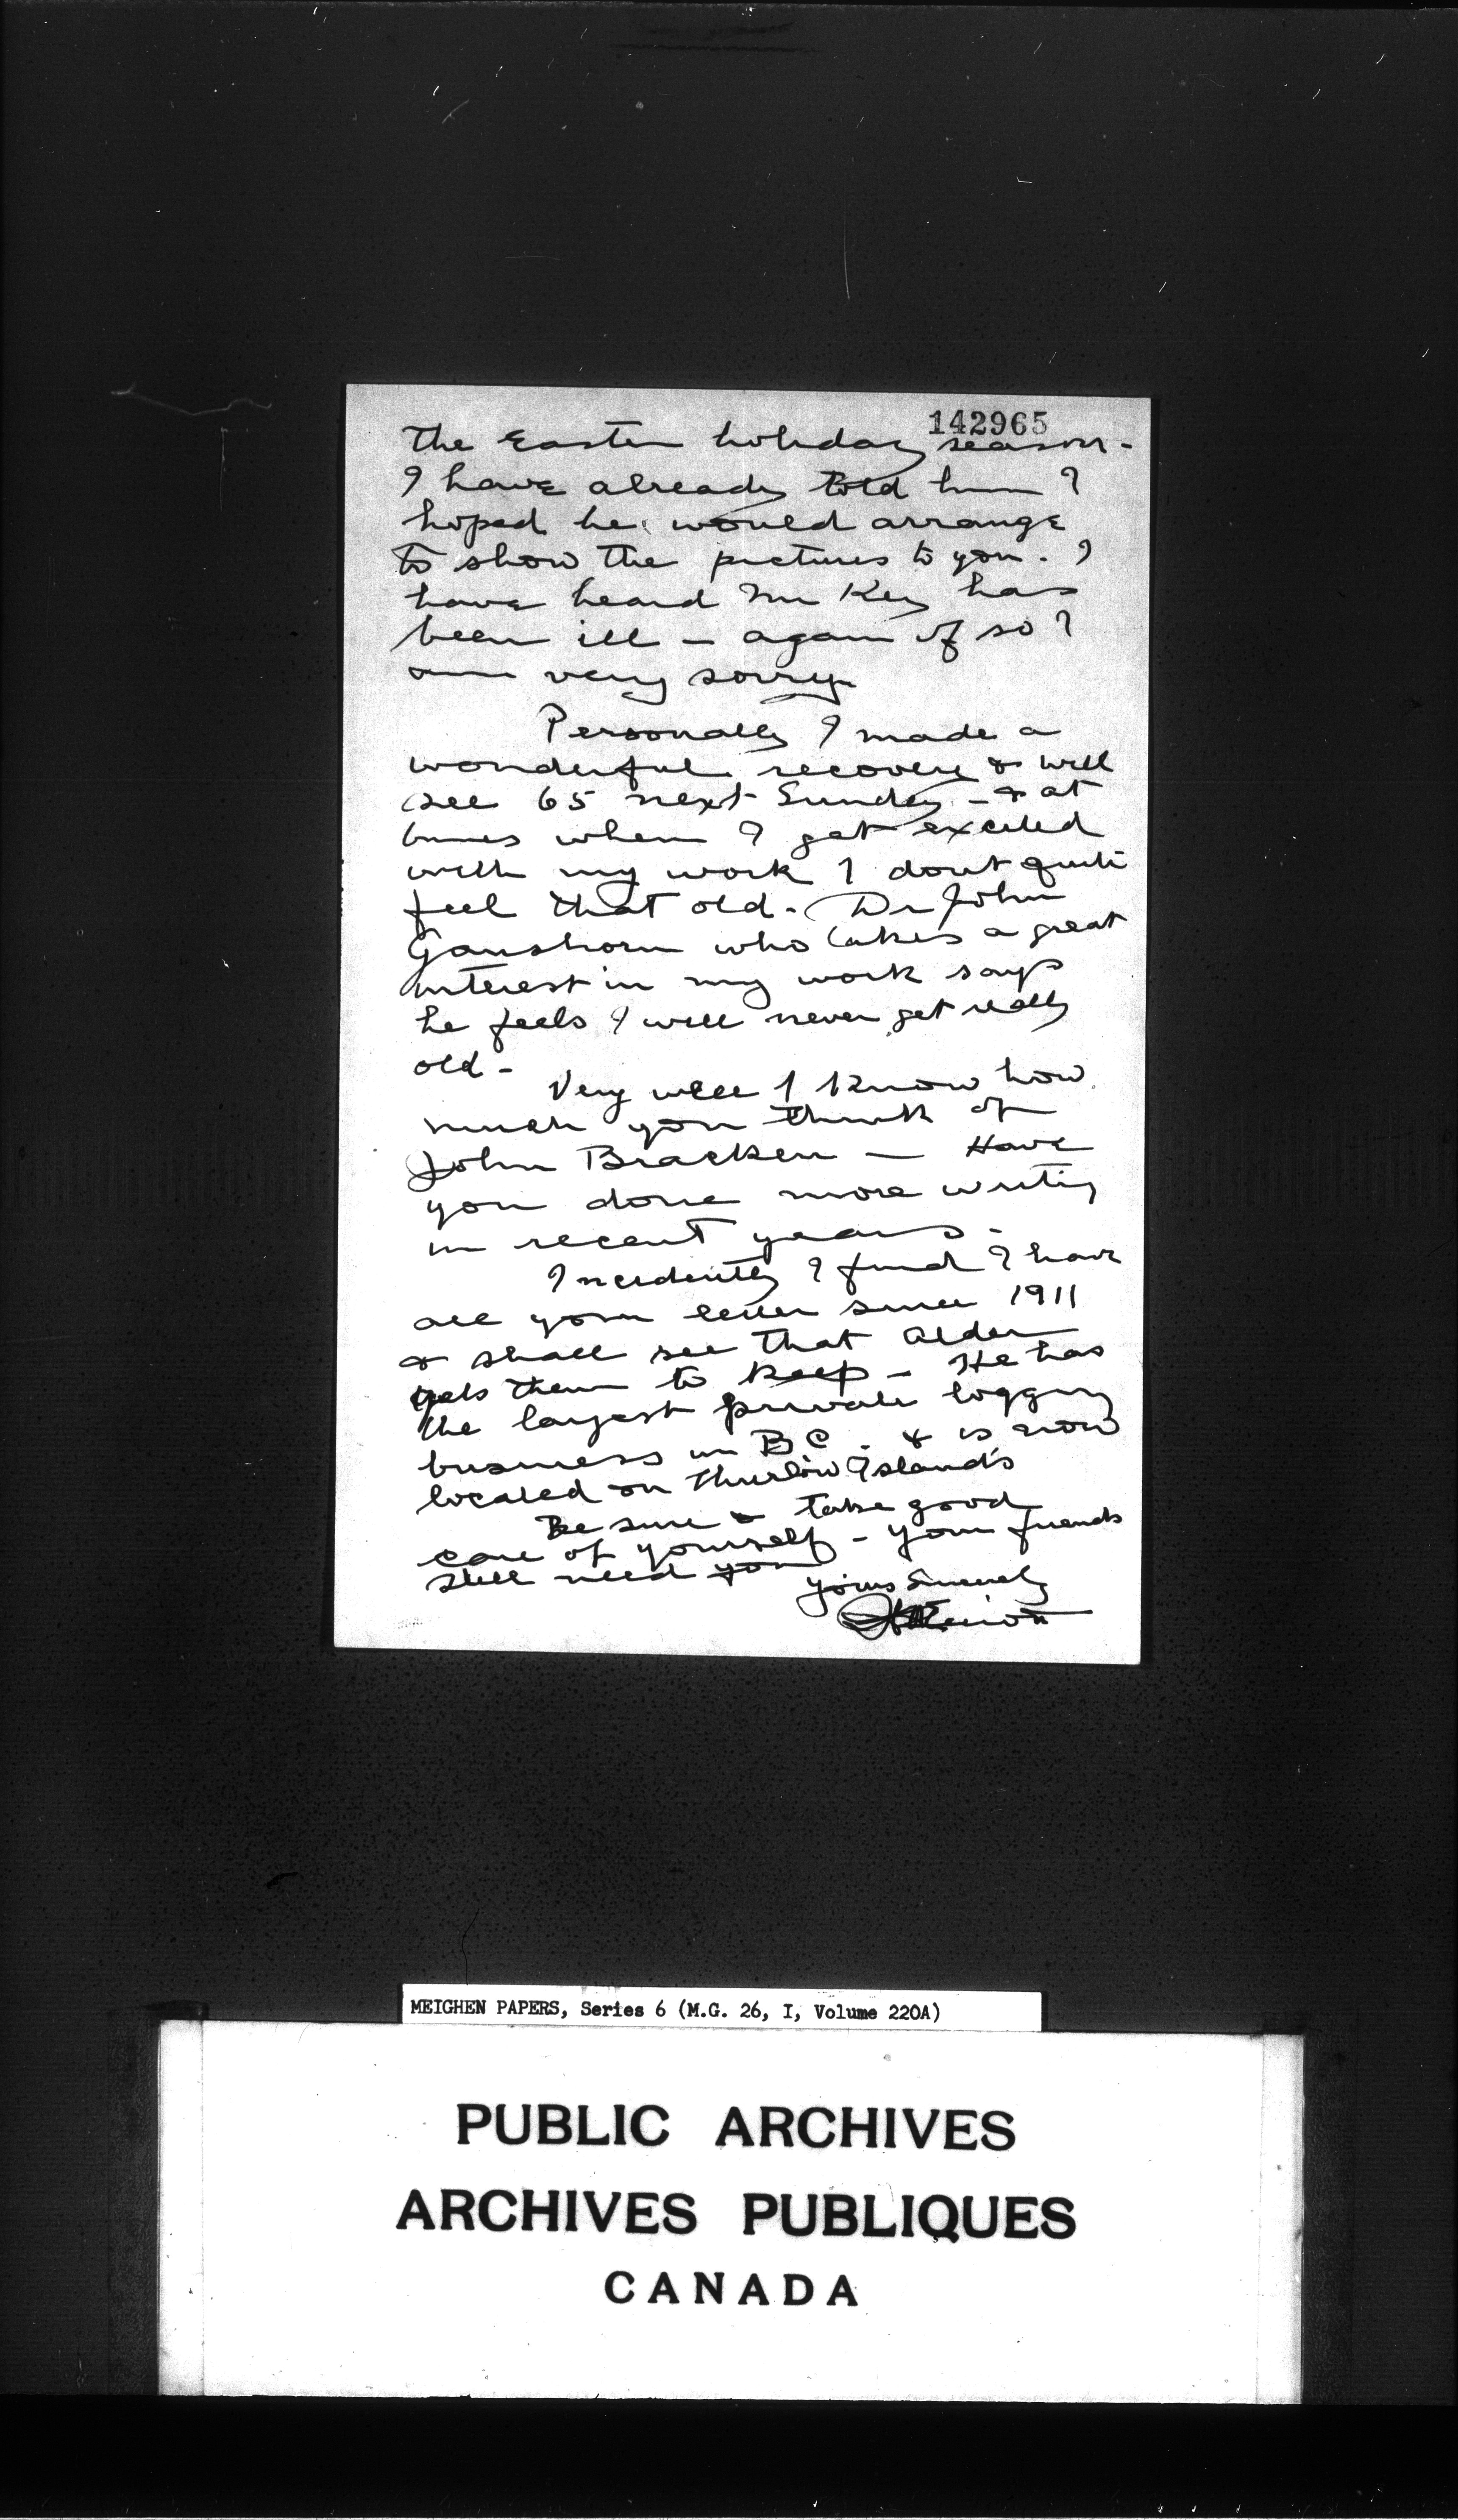 142965
the Easter holiday season -
I have already told him I
hoped he would arrange
to show the pictures to you. I
have heard Mr Key has
been ill - again if so I
am very sorry.
Personally I made a
wonderful recovery & will
see 65 next Sunday - & at
times when I get excited
with my work I dont quite
feel that old. Dr John
Ganshorn who takes a great
interest in my work says
he feels I will never get really
old -
Very well I know how
much you think of
John Bracken — Have
you done more writing
in recent years -
Incidently I find I have
all your letter since 1911
& shall see that Alden
gets them to keep - He has
the largest private logging
business in B C. & is now
located on Thurlow Islands
Be sure & take good
care of yourself - your friends
still need you
yours Sincerely
MEIGHEN PAPERS, Series 6 (M.G. 26, I, Volume 220A)
PUBLIC ARCHIVES
ARCHIVES PUBLIQUES
CANADA